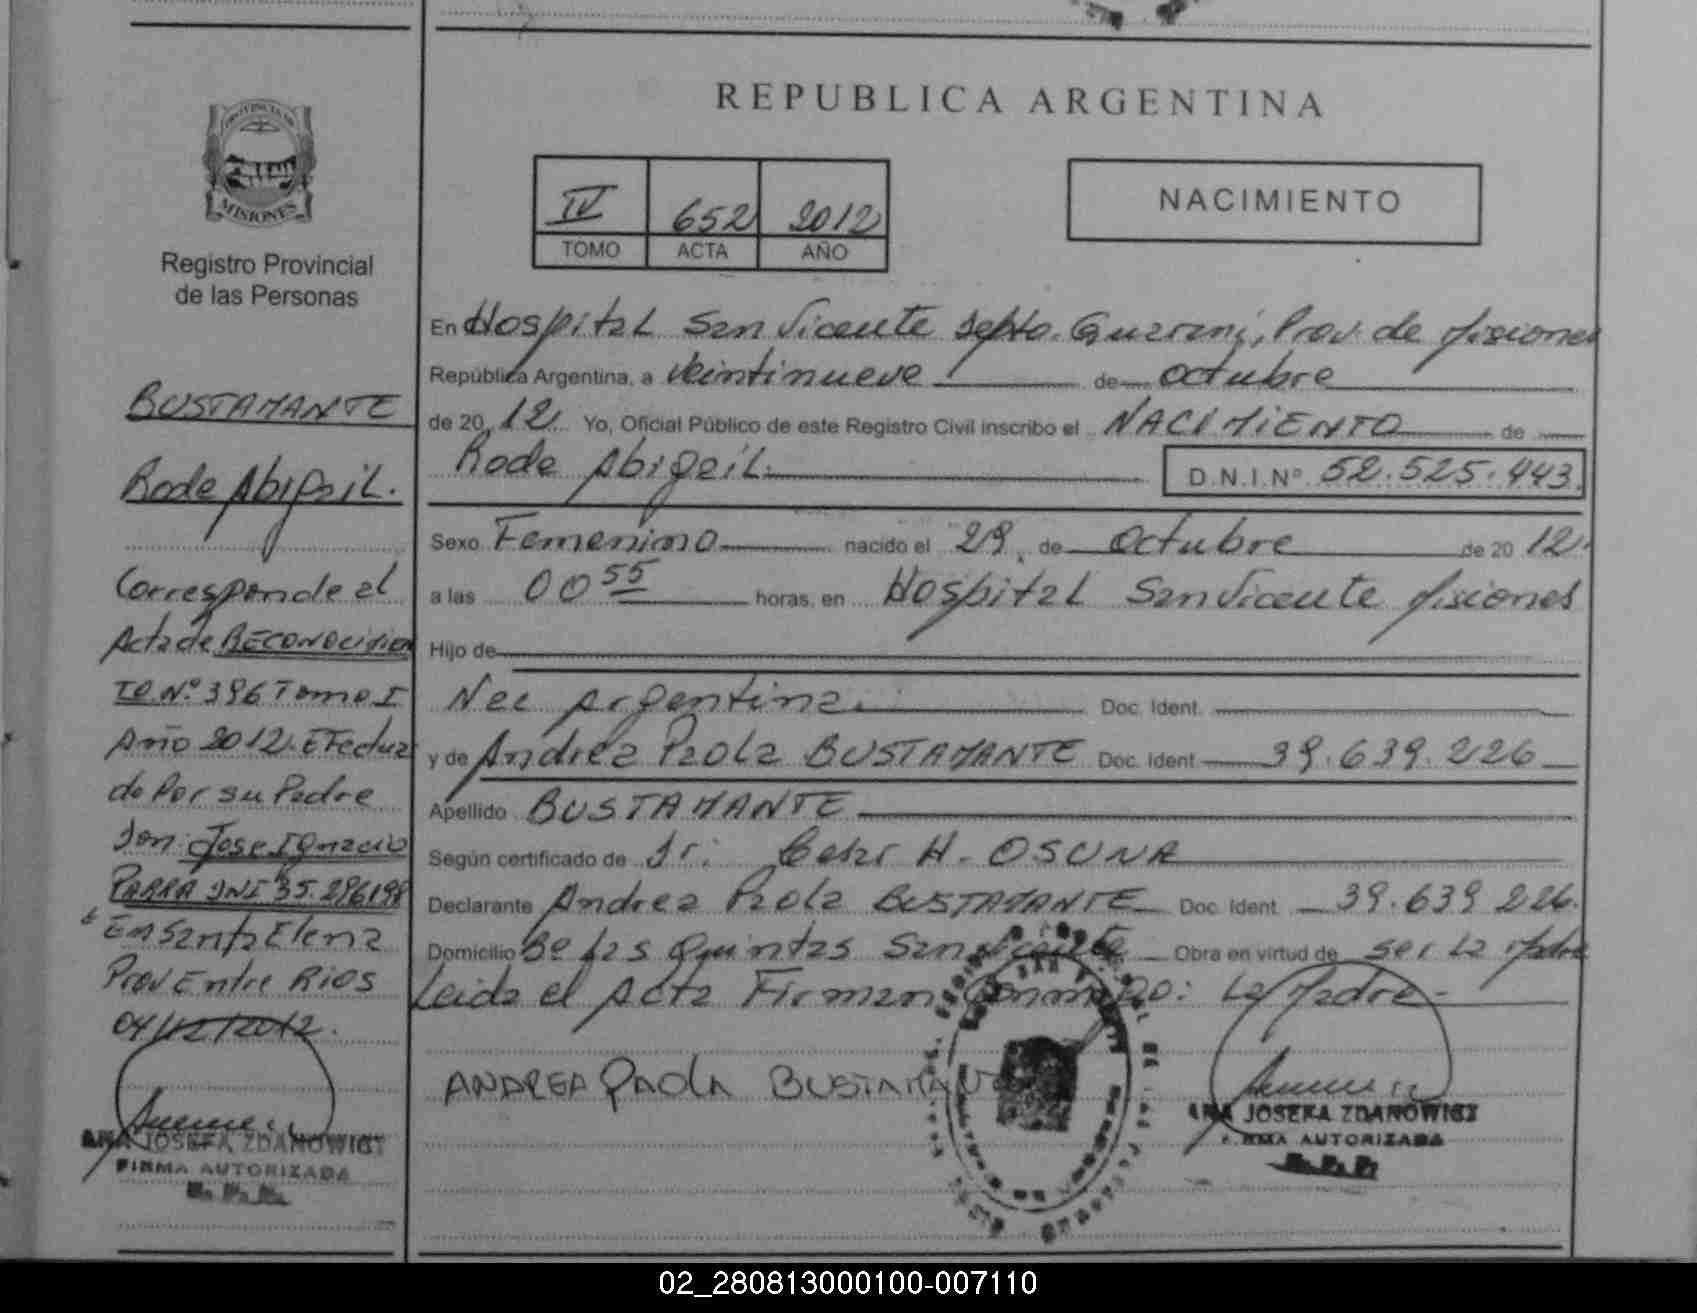 REPUBLICA ARGENTINA
PROVINCIA DE
MISIONES
Registro Provincial
de las Personas
IV 652 2012
TOMO ACTA AÑO
NACIMIENTO
BUSTAMANTE
Rode Abigail.
Corresponde al
Acta de RECONOCIMIEN
TO Nº 396 Tomo I
Año 2012. Efectua
do Por su Padre
Don: Jose Ignacio
PARRA DNI 35.296198
En Santa Elena
Prov Entre Rios
04/12/2012.
ANA JOSEFA ZDANOWICZ
FIRMA AUTORIZADA
En Hospital San Vicente Depto. Guarani, Prov. de Misiones
República Argentina, a Veintinueve de Octubre
de 20 12. Yo, Oficial Público de este Registro Civil inscribo el NACIMIENTO de
Rode Abigail. D.N.I.Nº 52.525.443.
Sexo Femenino nacido el 29 de Octubre de 20 12.
a las 00 55 horas, en Hospital San Vicente Misiones
Hijo de
Nac Argentina. Doc. Ident.
y de Andrea Paola BUSTAMANTE Doc. Ident. 39.639.226
Apellido BUSTAMANTE
Según certificado de Dr. Cesar H. OSUNA
Declarante Andrea Paola BUSTAMANTE Doc. Ident. 39.639.226.
Domicilio Bº Las Quintas San Vicente Obra en virtud de ser La Madre
Leida el Acta Firman Conmigo: La Madre-
ANDREA PAOLA BUSTAMANTE
ANA JOSEFA ZDANOWICZ
FIRMA AUTORIZADA
02_280813000100-007110